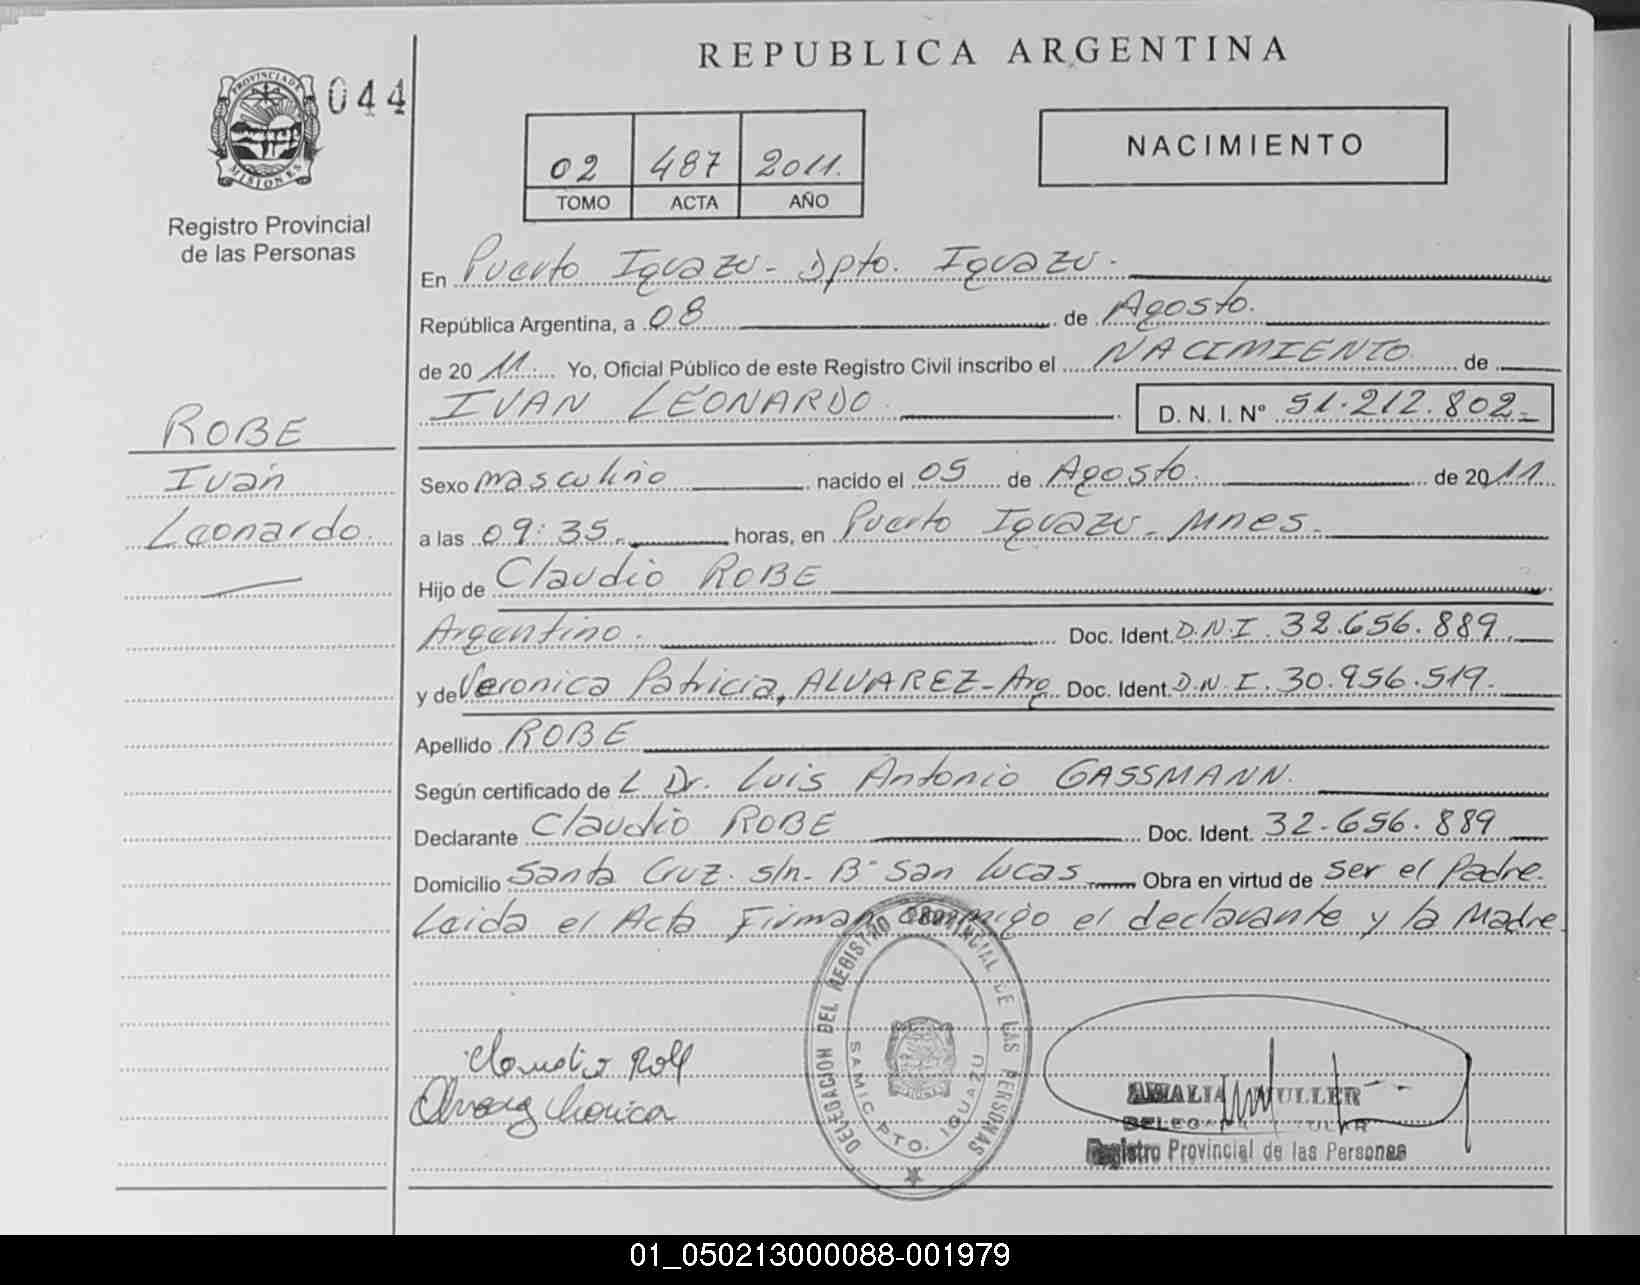 REPUBLICA ARGENTINA
PROVINCIA DE
MISIONES
044
Registro Provincial
de las Personas
02 487 2011.
TOMO ACTA AÑO
NACIMIENTO
ROBE
Iván
Leonardo.
En Puerto Iguazu - Dpto. Iguazu.
República Argentina, a 08 de Agosto.
de 20 11 Yo, Oficial Público de este Registro Civil inscribo el NACIMIENTO de
IVAN LEONARDO. D. N. I. N° 51.212.802-
Sexo masculino nacido el 05 de Agosto. de 20 11
a las 09:35. horas, en Puerto Iguazu - Mnes.
Hijo de Claudio ROBE
Argentino. Doc. Ident. D.N.I. 32.656.889.
y de Veronica Patricia, ALVAREZ - Arg Doc. Ident. D.N.I. 30.956.519.
Apellido ROBE
Según certificado de L Dr. Luis Antonio GASSMANN.
Declarante Claudio ROBE Doc. Ident. 32-656.889
Domicilio Santa Cruz. s/n - B° San Lucas Obra en virtud de ser el Padre.
Leida el Acta Firman conmigo el declarante y la Madre
DELEGACION DEL REGISTRO PROVINCIAL DE LAS PERSONAS
SAMIC PTO. IGUAZU
Claudio
AMALIA MULLER
Registro Provincial de las Personas
01_050213000088-001979